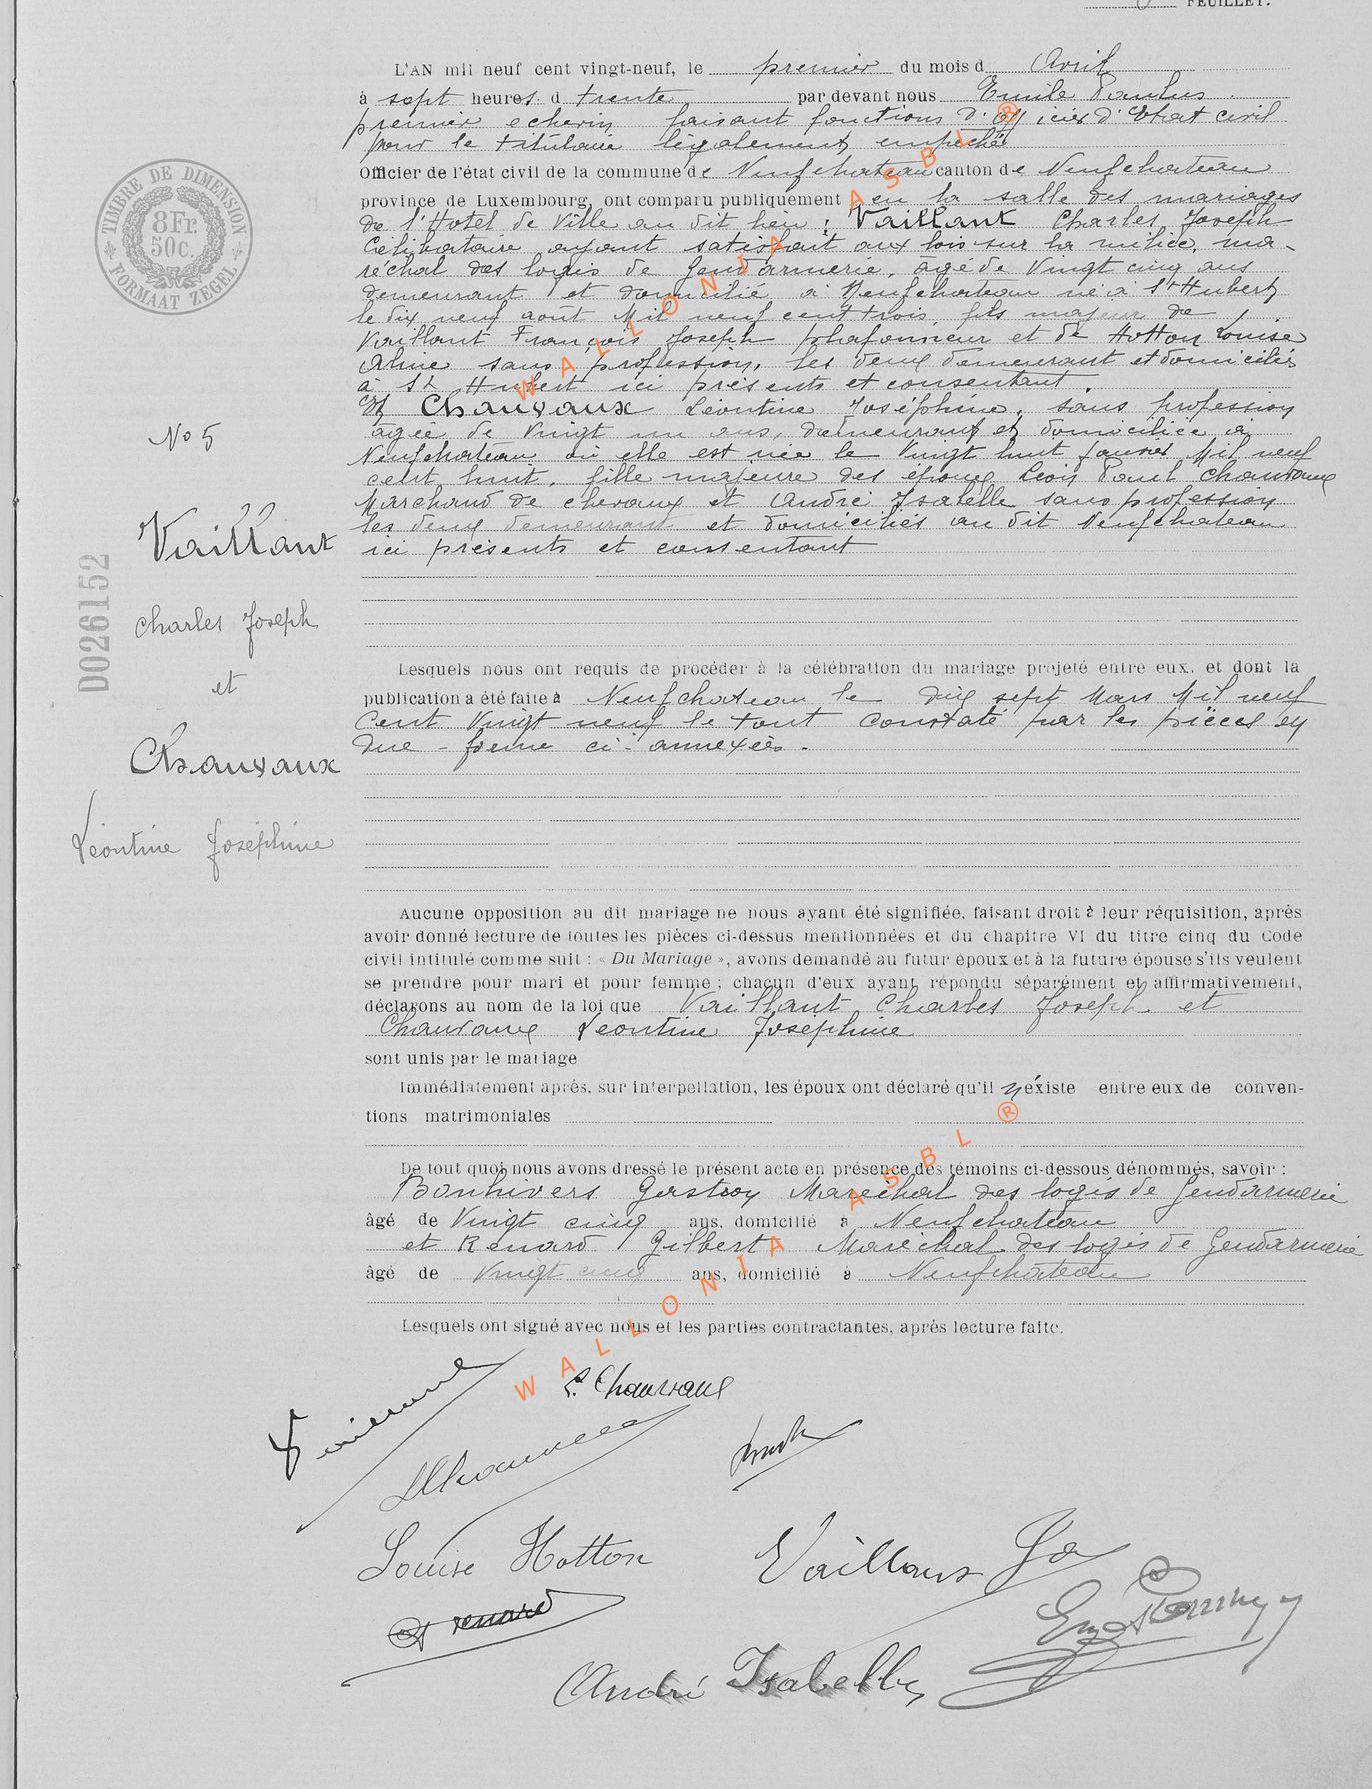 FEUILLET.
L'AN mil neuf cent vingt-neuf, le premier du mois d Avril
à sept heures d trente par devant nous Emile Paulus
premier echevin faisant fonctions d'officier d'Etat civil
pour le titulaire légalement empêché
Officier de l'état civil de la commune de Neufchateau canton de Neufchateau
province de Luxembourg, ont comparu publiquement en la salle des mariages
de l'Hotel de Ville au dit lieu : Vaillant Charles Joseph
Célibataire ayant satisfait aux lois sur la milice, ma-
réchal des logis de Gendarmerie, âgé de Vingt cinq ans
demeurant et domicilié à Neufchateau né à St Hubert
le dix neuf aout Mil neuf cent trois, fils majeur de
Vaillant François Joseph plafonnieur et de Hotton Louise
Aline sans profession, les deux demeurant et domiciliés
à St Hubert ici présents et consentant.
Et Chauvaux Léontine Joséphine, sans profession
agée de Vingt un ans, demeurant et domiciliée à
Neufchâteau où elle est née le Vingt huit Janvier Mil neuf
cent huit, fille majeure des époux Léon Paul Chauvaux
Marchand de chevaux et André Isabelle sans profession
les deux demeurant et domiciliés au dit Neufchateau
ici présents et consentant
No 5
Vaillant
Charles Joseph
et
Chauvaux
Léontine Joséphine
D026152
TIMBRE DE DIMENSION
8Fr.
50c.
FORMAAT ZEGEL
Lesquels nous ont requis de procéder à la célébration du mariage projeté entre eux, et dont la
publication a été faite à Neufchateau le dix sept Mars Mil neuf
Cent Vingt neuf le tout constaté par les pièces en
due - forme ci-annexées.
Aucune opposition au dit mariage ne nous ayant été signifiée, faisant droit à leur réquisition, après
avoir donné lecture de toutes les pièces ci-dessus mentionnées et du chapitre VI du titre cinq du Code
civil intitulé comme suit : « Du Mariage », avons demandé au futur époux et à la future épouse s'ils veulent
se prendre pour mari et pour femme ; chacun d'eux ayant répondu séparément et affirmativement,
déclarons au nom de la loi que Vaillant Charles Joseph et
Chauvaux Léontine Joséphine
sont unis par le mariage
Immédiatement après, sur interpellation, les époux ont déclaré qu'il n'éxiste entre eux de conven-
tions matrimoniales
De tout quoi nous avons dressé le présent acte en présence des témoins ci-dessous dénommés, savoir :
Bonhivers Maréchal des logis de Gendarmerie
âgé de Vingt cinq ans, domicilié à Neufchateau
et Renard Gilbert Maréchal des logis de Gendarmerie
âgé de Vingt cinq ans, domicilié à Neufchateau
Lesquels ont signé avec nous et les parties contractantes, après lecture faite.
Vaillant
L. Chauvaux
Louise Hotton
Vaillant
Renard
André Isabelle
WALLONIA ASBL ®
WALLONIA ASBL ®